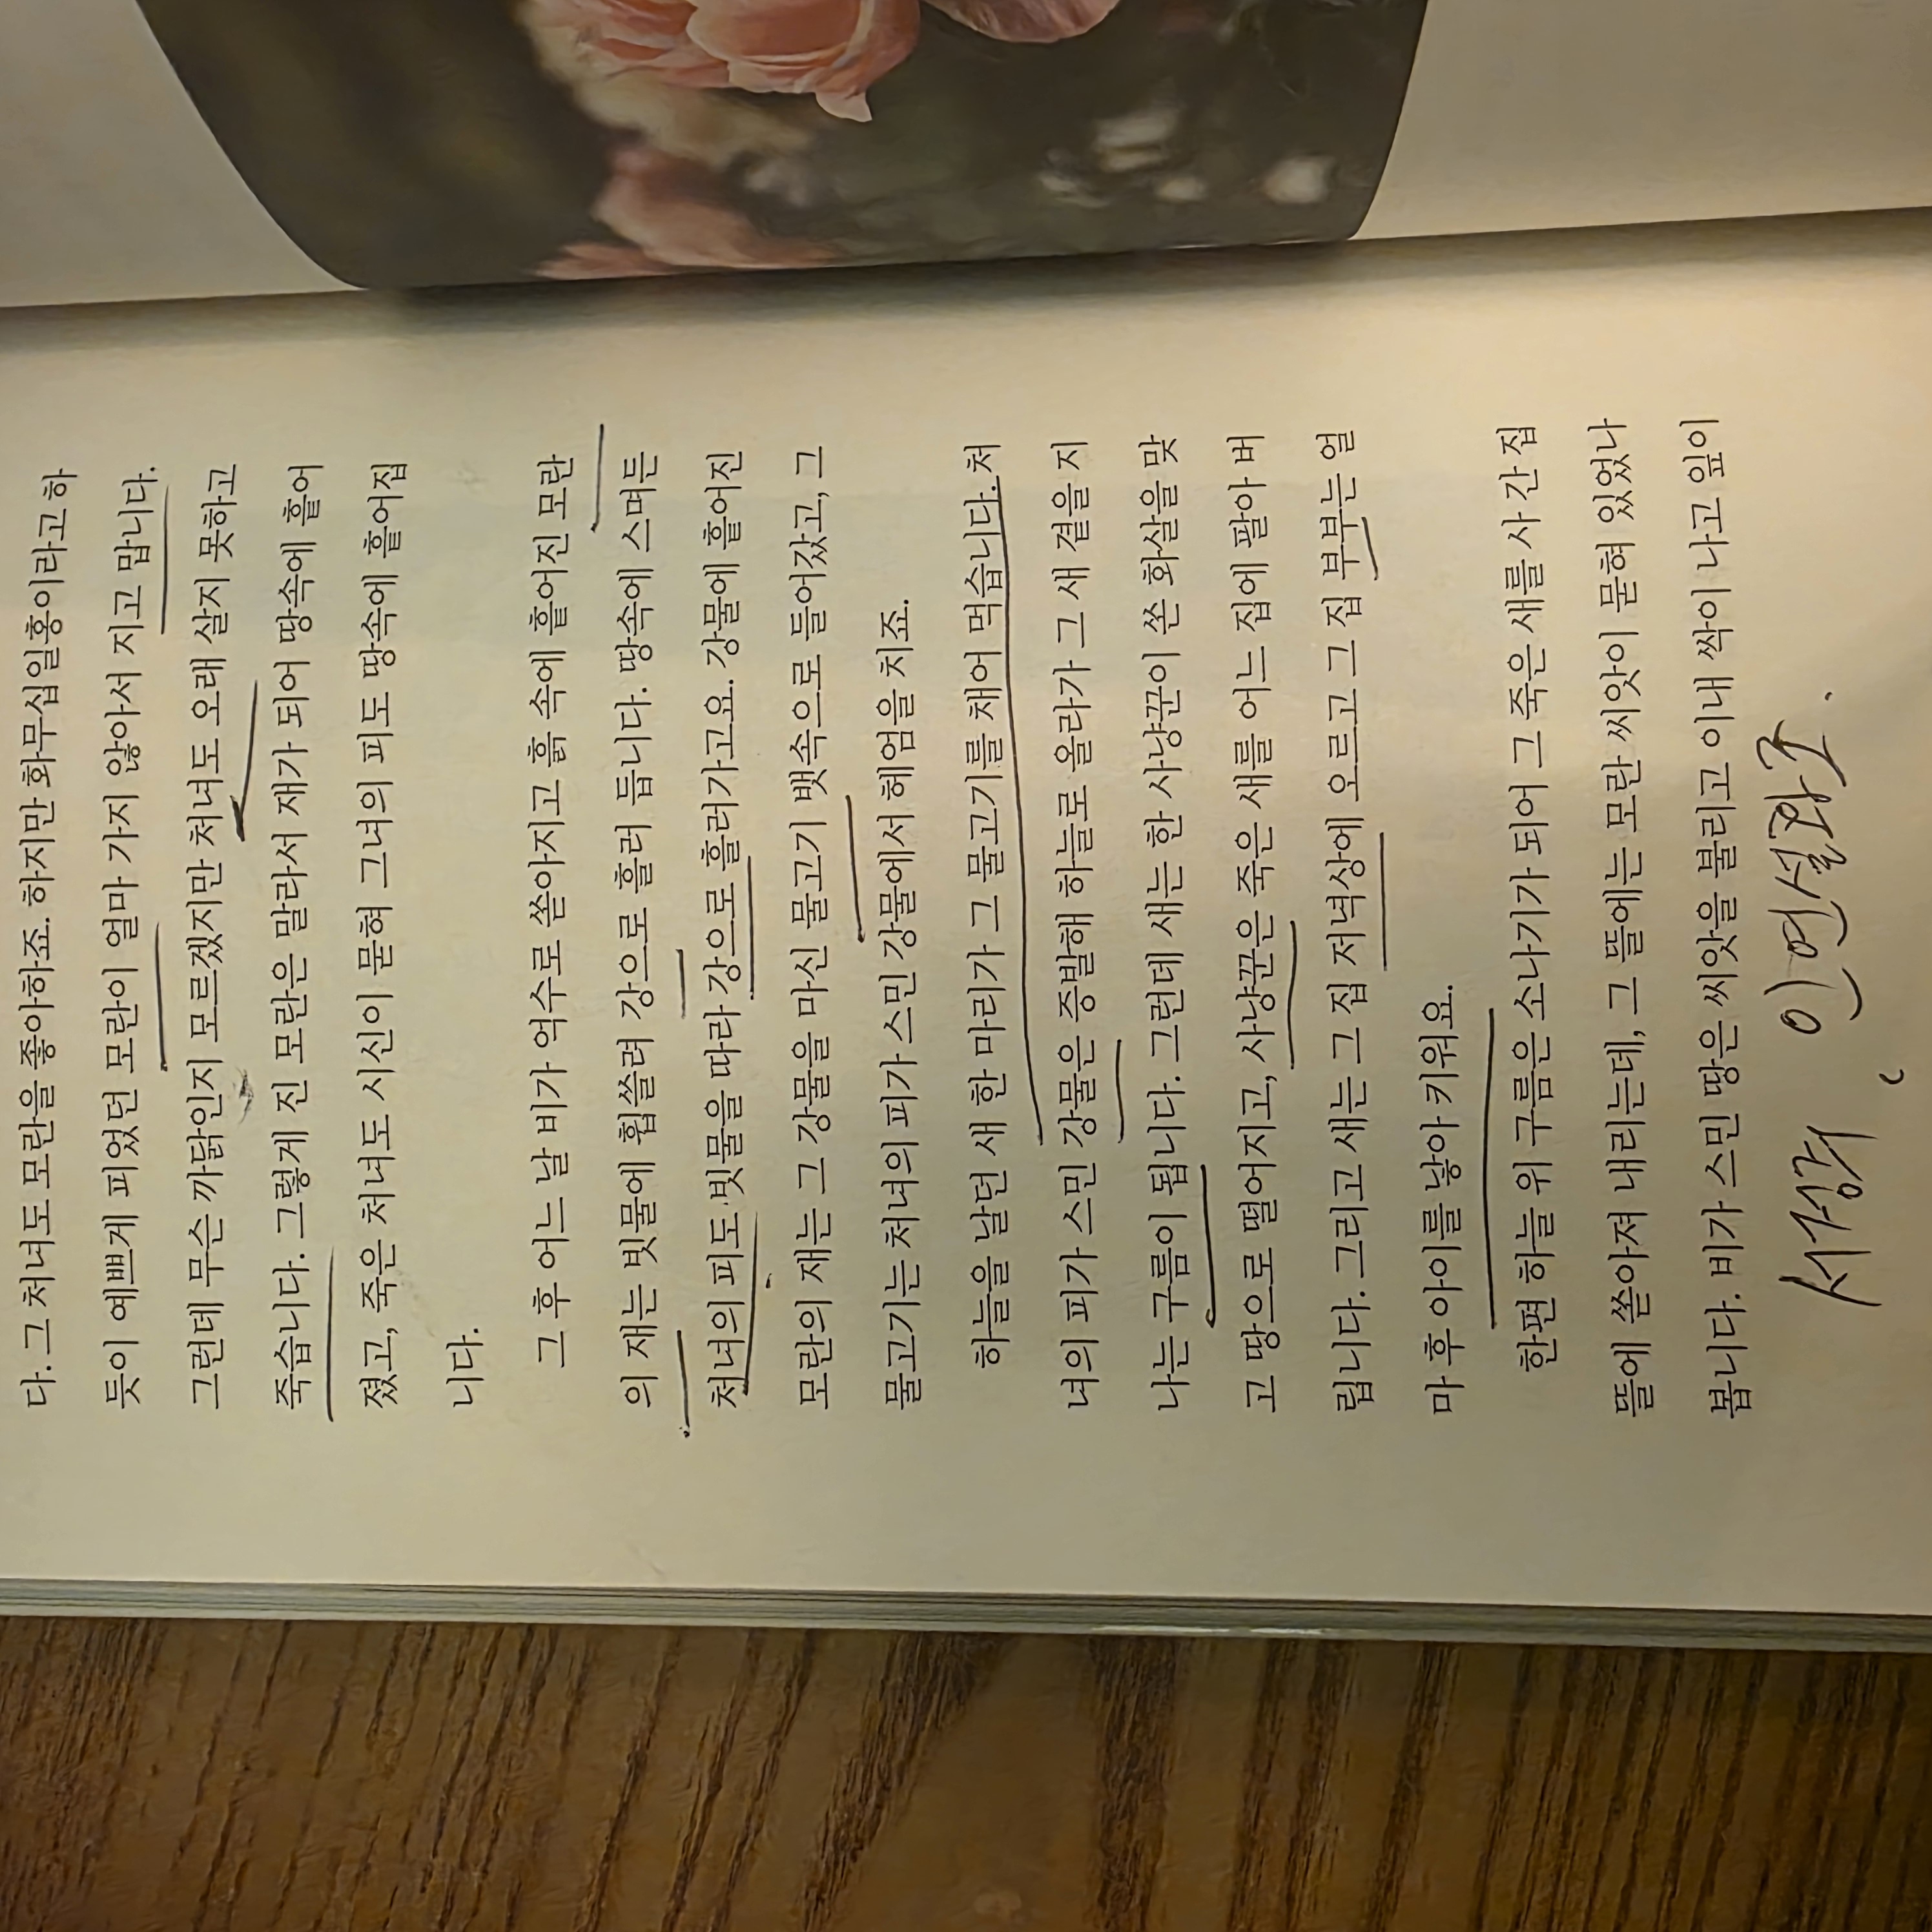 다. 그 처녀도 모란을 좋아하죠. 하지만 화무십일홍이라고 하
듯이 예쁘게 피었던 모란이 얼마 가지 않아서 지고 맙니다.
그런데 무슨 까닭인지 모르겠지만 처녀도 오래 살지 못하고
죽습니다. 그렇게 진 모란은 말라서 재가 되어 땅속에 흩어
졌고, 죽은 처녀도 시신이 묻혀 그녀의 피도 땅속에 흩어집
니다.
그 후 어느 날 비가 억수로 쏟아지고 흙 속에 흩어진 모란
의 재는 빗물에 휩쓸려 강으로 흘러 듭니다. 땅속에 스며든
처녀의 피도 빗물을 따라 강으로 흘러가고요. 강물에 흩어진
모란의 재는 그 강물을 마신 물고기 뱃속으로 들어갔고, 그
물고기는 처녀의 피가 스민 강물에서 헤엄을 치죠.
하늘을 날던 새 한 마리가 그 물고기를 채어 먹습니다. 처
녀의 피가 스민 강물은 증발해 하늘로 올라가 그 새 곁을 지
나는 구름이 됩니다. 그런데 새는 한 사냥꾼이 쏜 화살을 맞
고 땅으로 떨어지고, 사냥꾼은 죽은 새를 어느 집에 팔아 버
립니다. 그리고 새는 그 집 저녁상에 오르고 그 집 부부는 얼
마 후 아이를 낳아 키워요.
한편 하늘 위 구름은 소나기가 되어 그 죽은 새를 사 간 집
뜰에 쏟아져 내리는데, 그 뜰에는 모란 씨앗이 묻혀 있었나
봅니다. 비가 스민 땅은 씨앗을 불리고 이내 싹이 나고 잎이
인연설화조.